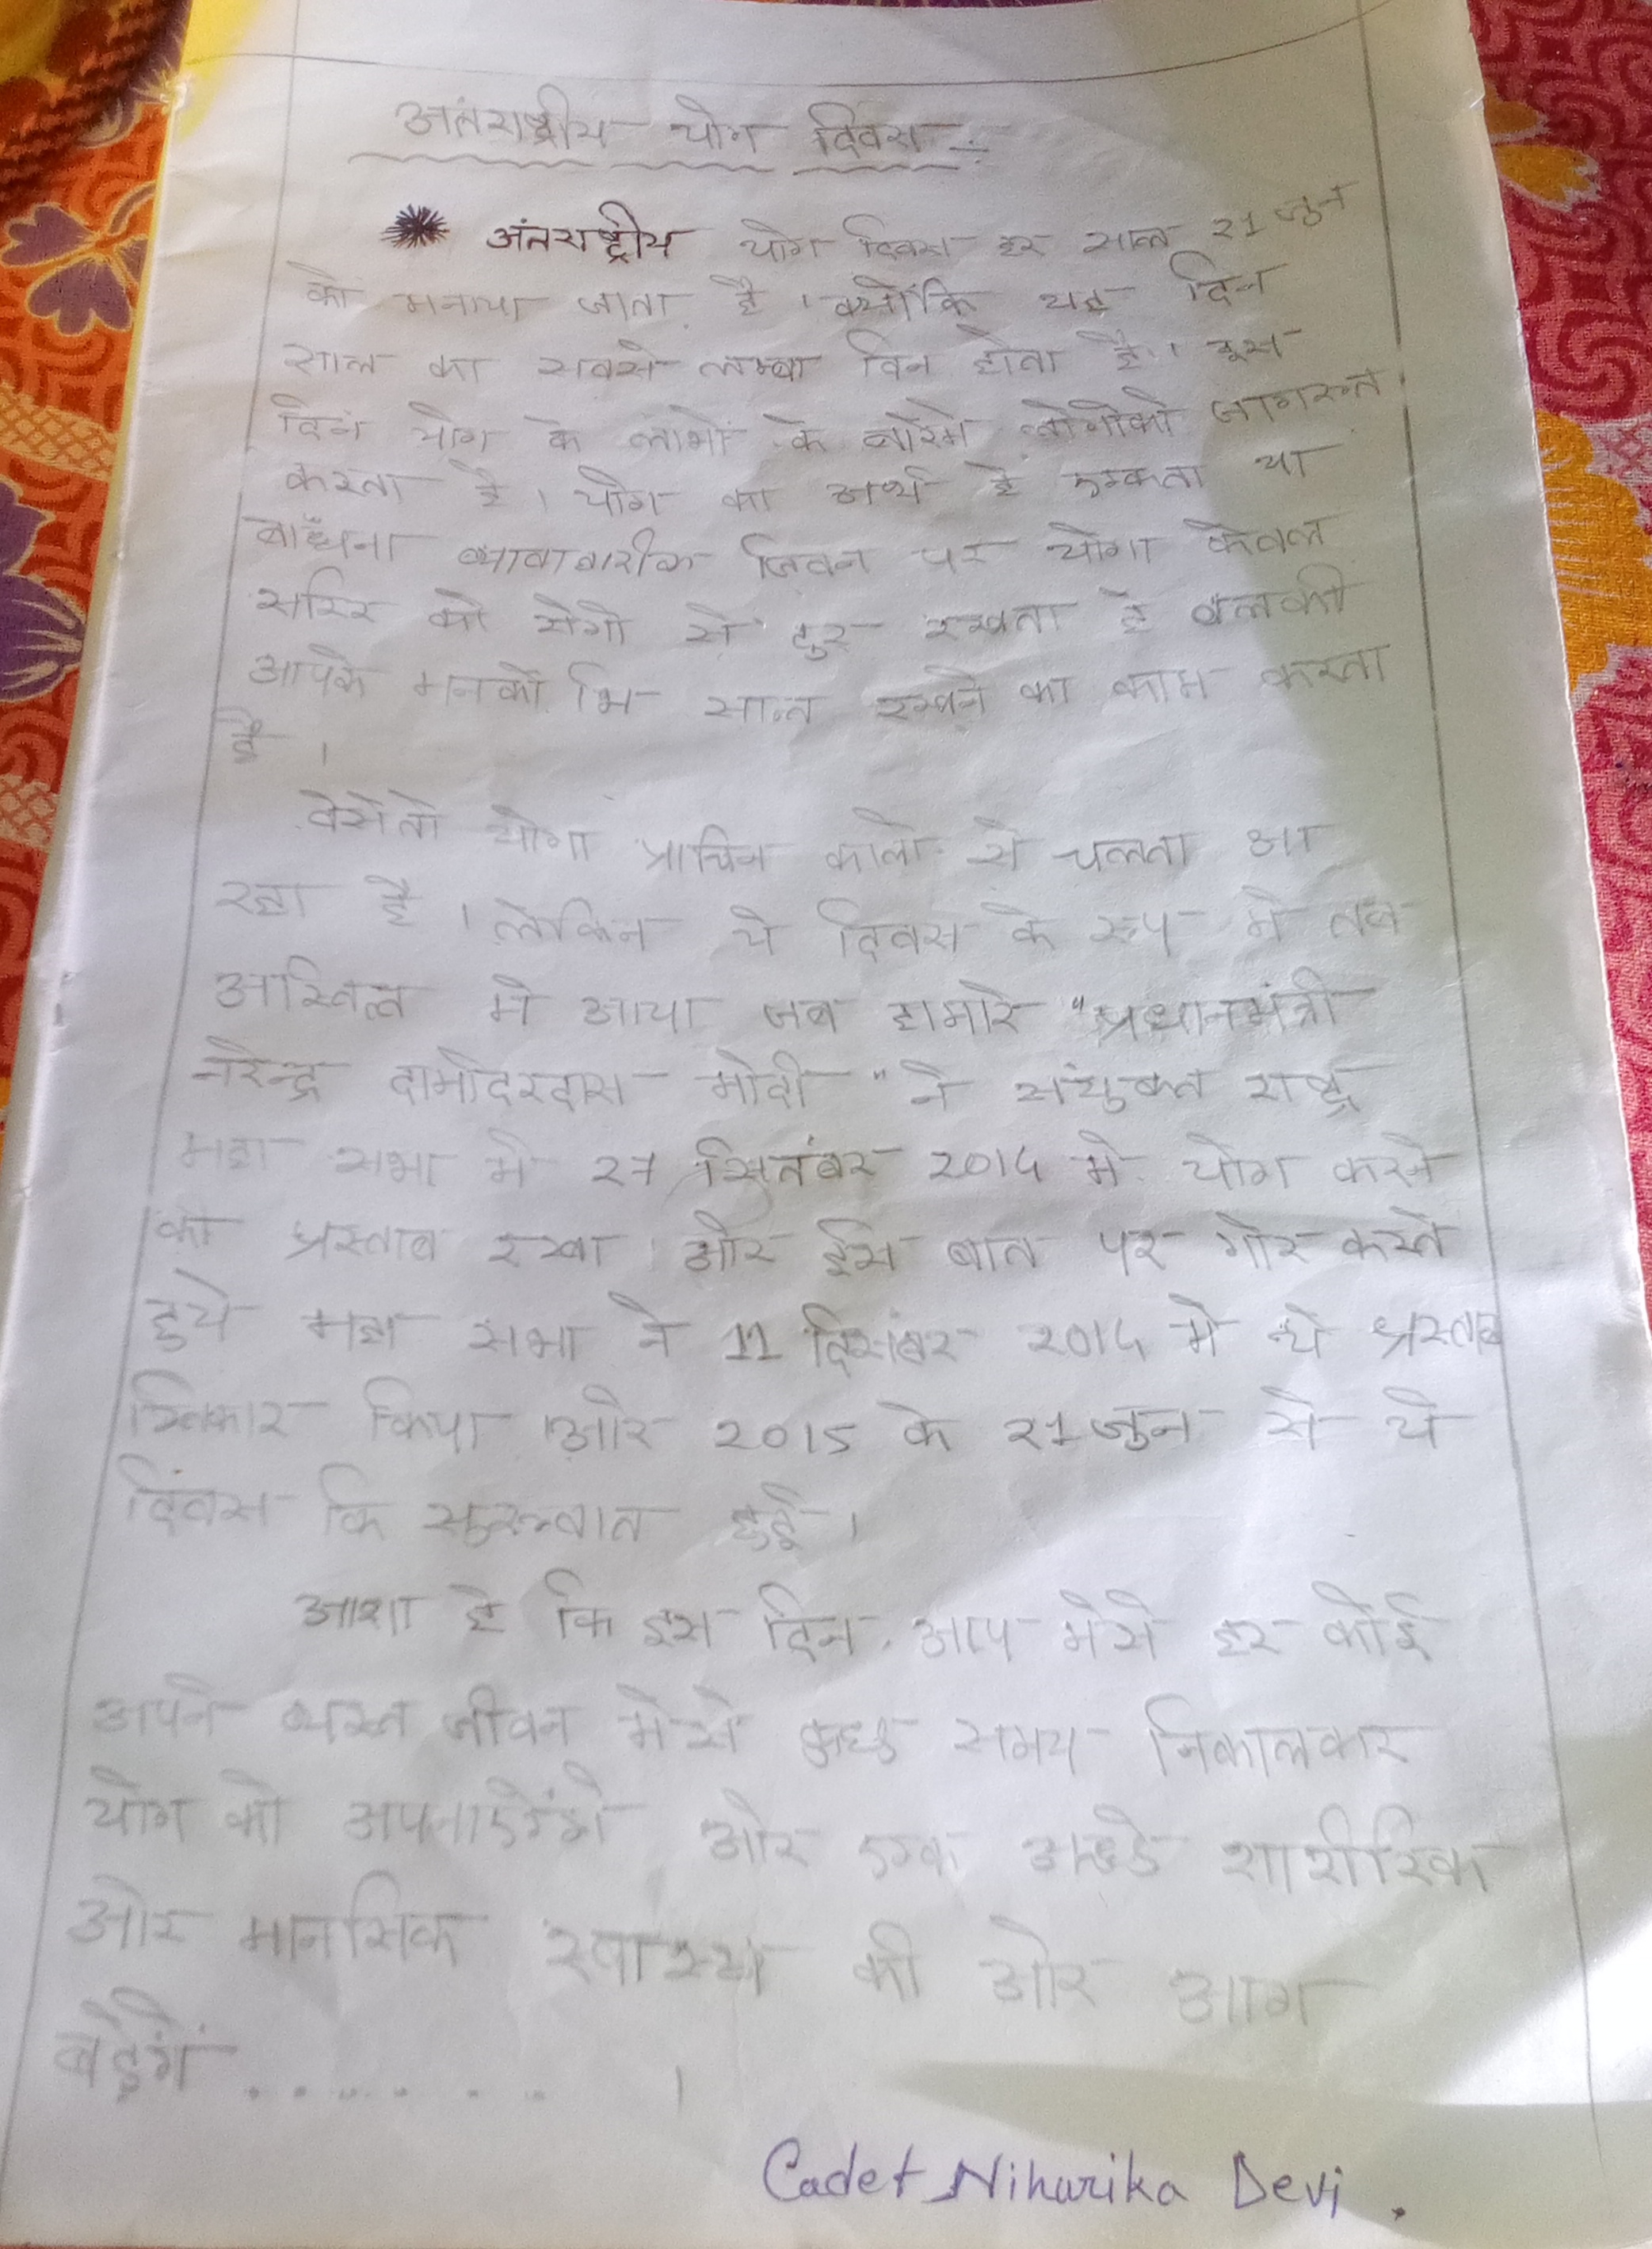 अंतराष्ट्रीय योग दिवस :-
अंतराष्ट्रीय योग दिवस हर साल 21 जुन
को मनाया जाता है । क्योंकि यह दिन
साल का सबसे लम्बा दिन होता है। इस
दिन योग के लाभों के बारेमे लोगोको जागरुत
करता है । योग का अर्थ है एकता या
बाँधना जिवन पर योगा केवल
सरिर को रोगो से दुर रखता है बलकी
आपके मनको भि सान्त रखने का काम करता
है ।
वेसेतो योगा प्राचिन कालो से चलता आ
रहा है । लेकिन ये दिवस के रुप मे तब
अस्तित्व मे आया जब हामारे "प्रधानमंत्री
नरेन्द्र दामोदरदास मोदी" ने संयुक्त राष्ट्र
महा सभा मे 27 सितंबर 2014 मे योग करने
का प्रस्ताब रखा । और ईस बात पर गोर करते
हुये महा सभा ने 11 दिसंबर 2014 मे ये प्रस्ताब
स्विकार किया और 2015 के 21 जुन से ये
दिवस कि सुरुवात हुई ।
आशा है कि इस दिन आप मेसे हर कोई
अपने व्यस्त जीवन मेसे कुछ समय निकालकार
योग को अपनाऐंगे और एक अछे शारीरिक
और मानसिक स्वास्थ्य की ओर आगे
बढ़ेंगे ......... ।
Cadet Niharika Devi .